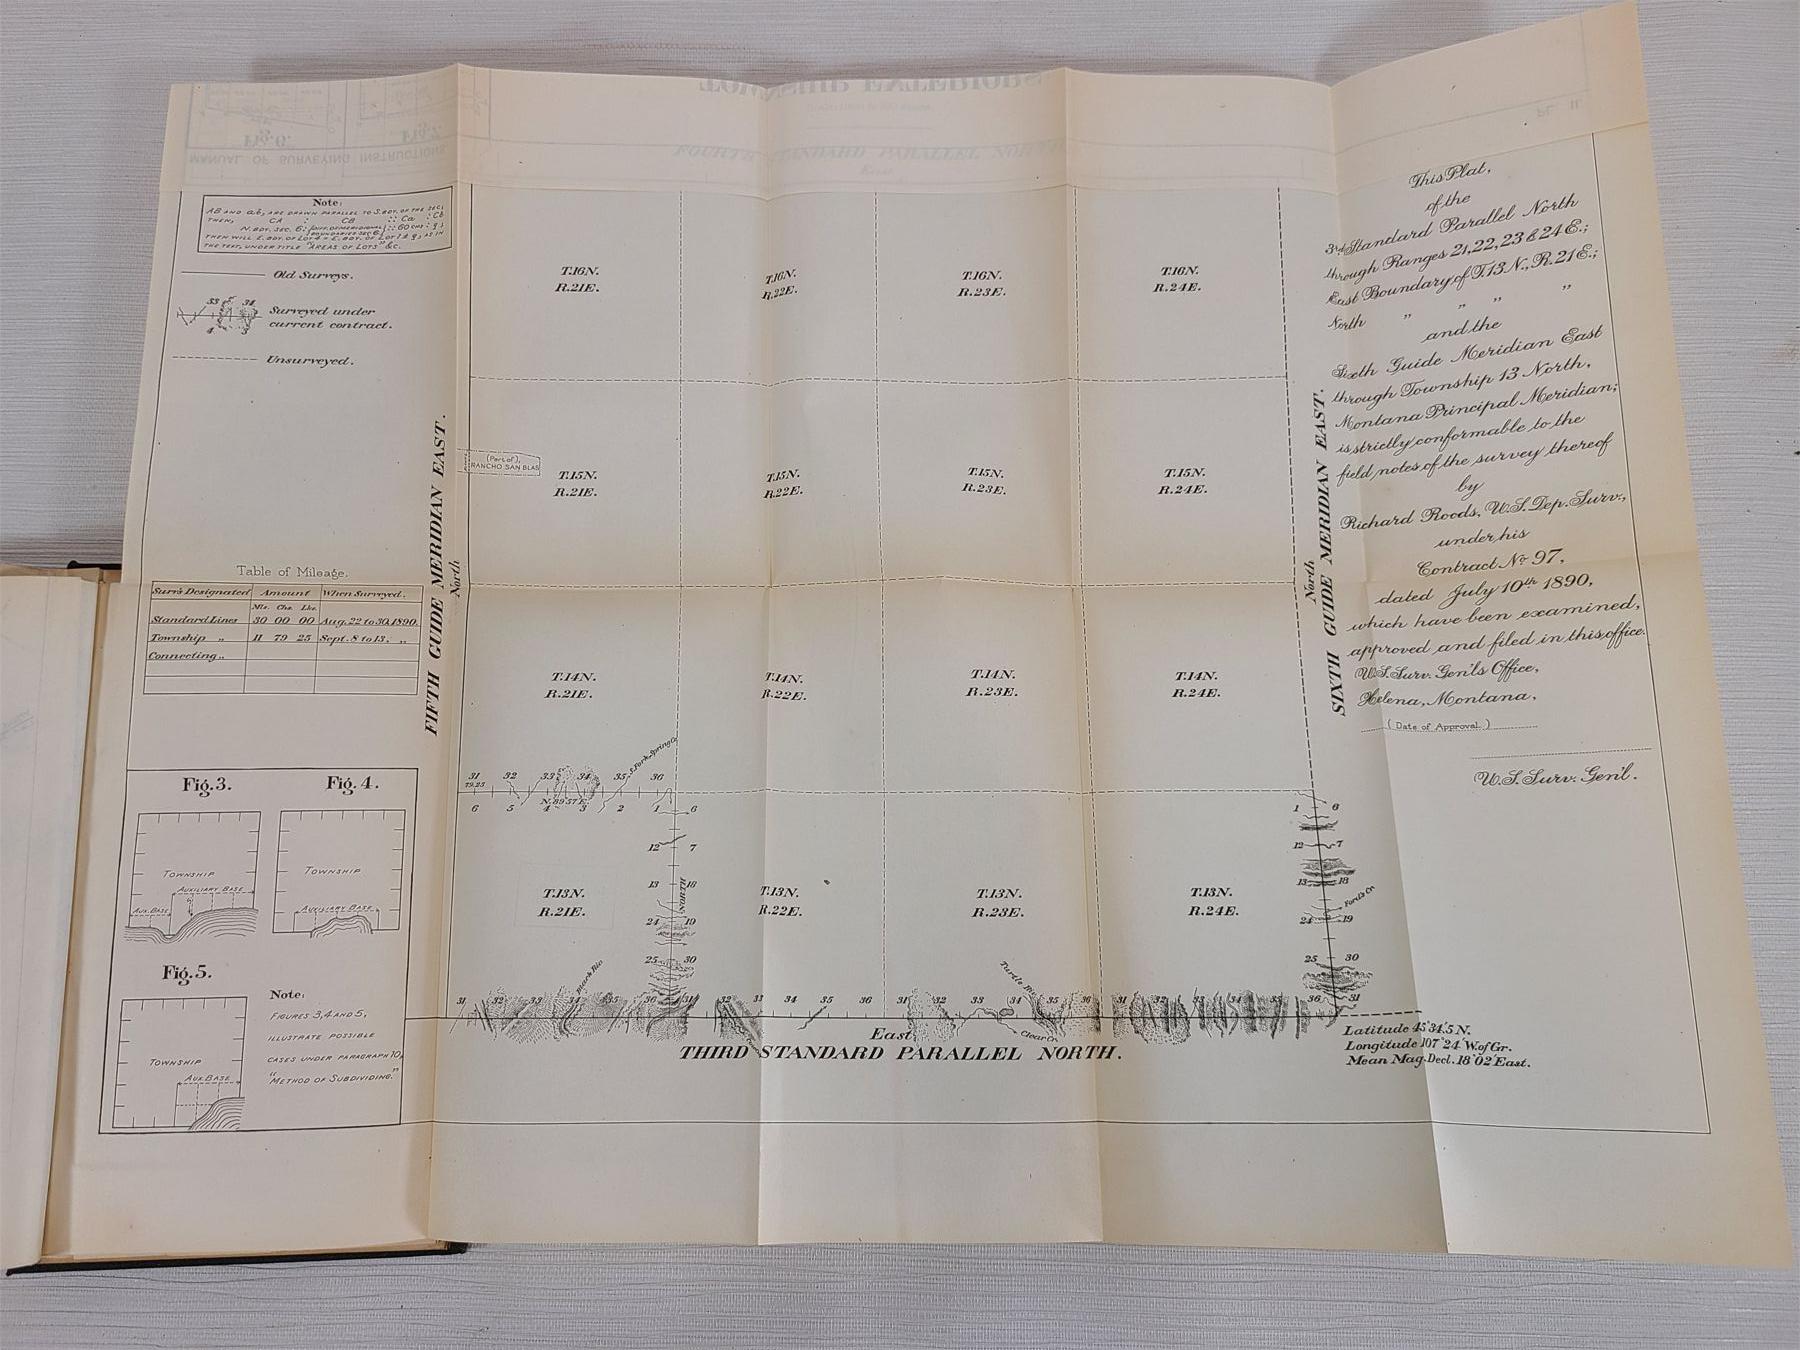 Note:
AB AND ab, ARE DRAWN PARALLEL TO S. BDY. OF THE SEC;
THEN, CA : CB :: Ca : Cb
THE TEXT, UNDER TITLE "AREAS OF LOTS" &c.
Old Surveys.
33 34
4 3
Surveyed under
current contract.
Unsurveyed.
FIFTH GUIDE MERIDIAN EAST.
North
Table of Mileage.
Surv's Designated Amount When Surveyed.
Mls. Chs. Lks.
Standard Lines 30 00 00 Aug. 22 to 30, 1890.
Township „ 11 79 25 Sept. 8 to 13, „
Connecting „
Fig. 3.
TOWNSHIP
AUXILIARY BASE
AUX. BASE
Fig. 4.
TOWNSHIP
AUXILIARY BASE
Fig. 5.
TOWNSHIP
AUX. BASE
Note:
FIGURES 3, 4 AND 5,
ILLUSTRATE POSSIBLE
CASES UNDER PARAGRAPH 10,
"METHOD OF SUBDIVIDING."
T.16N. T.16N. T.16N. T.16N.
R.21E. R.22E. R.23E. R.24E.
(Part of),
RANCHO SAN BLAS
T.15N. T.15N. T.15N. T.15N.
R.21E. R.22E. R.23E. R.24E.
T.14N. T.14N. T.14N. T.14N.
R.21E. R.22E. R.23E. R.24E.
S. Fork Spring Cr.
31 32 33 34 35 36
79.25
N. 89°57'E.
6 5 4 3 2 1 6 1 6
12 7 12 7
13 18 13 18
NORTH
Ford's Cr.
24 19 24 19
T.13N. T.13N. T.13N. T.13N.
R.21E. R.22E. R.23E. R.24E.
25 30 25 30
31 32 33 34 35 36 31 32 33 34 35 36 31 32 33 34 35 36 31 32 33 34 36 31
East
Clear Cr.
THIRD STANDARD PARALLEL NORTH.
North
SIXTH GUIDE MERIDIAN EAST.
Latitude 45°34.'5 N.
Longitude 107°24' W. of Gr.
Mean Mag. Decl. 18°02' East.
This Plat,
of the
3rd Standard Parallel North
through Ranges 21, 22, 23 & 24 E.;
East Boundary of T. 13 N., R. 21 E.;
North „ „ „ „
and the
Sixth Guide Meridian East
through Township 13 North,
Montana Principal Meridian;
is strictly conformable to the
field notes of the survey thereof
by
Richard Roods, U.S. Dep. Surv.,
under his
Contract No. 97,
dated July 10th 1890,
which have been examined,
approved and filed in this office.
U.S. Surv. Gen'ls Office,
Helena, Montana,
(Date of Approval)
U.S. Surv. Gen'l.